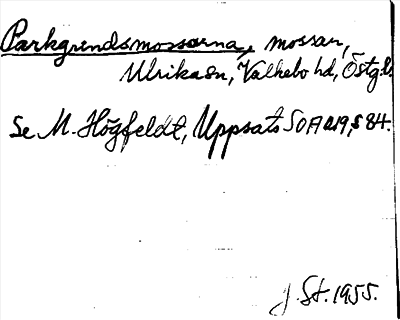 Parkgrendsmossarna, mossar,
Ulrika sn, Valkebo hd, Östg.l.
Se M. Högfeldt, Uppsats SOFA 219, s 84.
J. St. 1955.